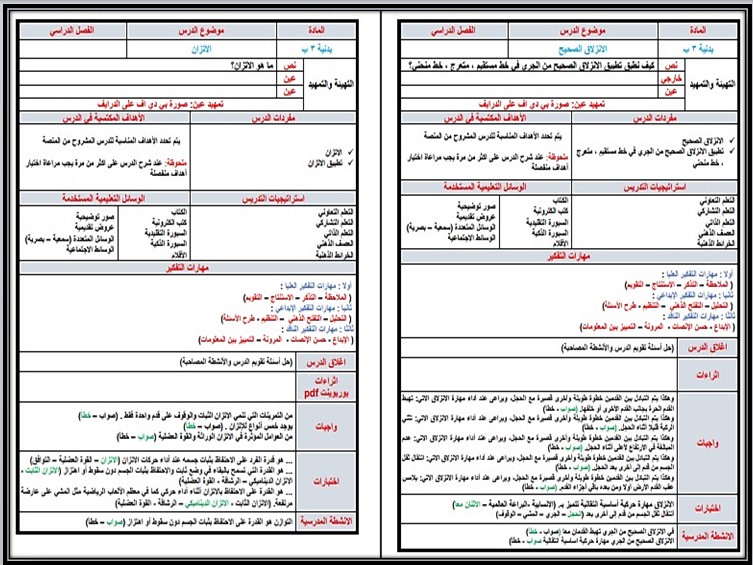 المادة	موضوع الدرس	الفصل الدراسي
بدنية ٣ ب	الانزلاق الصحيح
التهيئة والتمهيد
نص	كيف نطبق تطبيق الانزلاق الصحيح من الجري في خط مستقيم ، متعرج ، خط منحني؟
خارجي
عين
تمهيد عين: صورة بي دي اف على الدرايف
مفردات الدرس	الأهداف المكتسبة في الدرس
✓ الانزلاق الصحيح
✓ تطبيق الانزلاق الصحيح من الجري في خط مستقيم ، متعرج
، خط منحني
يتم تحدد الأهداف المناسبة للدرس المشروح من المنصة
ملحوظة: عند شرح الدرس على اكثر من مرة يجب مراعاة اختيار
أهداف منفصلة
استراتيجيات التدريس	الوسائل التعليمية المستخدمة
التعلم التعاوني
التعلم التشاركي
التعلم الذاتي
العصف الذهني
الخرائط الذهنية
الكتاب
كتب الكترونية
السبورة التقليدية
السبورة الذكية
الأقلام
صور توضيحية
عروض تقديمية
الوسائل المتعددة (سمعية – بصرية)
الوسائط الاجتماعية
مهارات التفكير
أولا : مهارات التفكير العليا :
( الملاحظة – التذكر – الاستنتاج – التقويم)
ثانيا : مهارات التفكير الإبداعي :
( التحليل – التفتح الذهني – التنظيم - طرح الأسئلة)
ثالثا : مهارات التفكير الناقد :
( الإبداع - حسن الإنصات - المرونة – التمييز بين المعلومات)
اغلاق الدرس	(حل أسئلة تقويم الدرس والأنشطة المصاحبة)
اثراءات
واجبات
وهكذا يتم التبادل بين القدمين خطوة طويلة وأخرى قصيرة مع الحجل، ويراعى عند أداء مهارة الانزلاق الاتي: تهبط
القدم الحرة بجانب القدم الأخرى أو خلفها. (صواب - خطأ)
وهكذا يتم التبادل بين القدمين خطوة طويلة وأخرى قصيرة مع الحجل، ويراعى عند أداء مهارة الانزلاق الاتي: تثني
الركبة قليلا أثناء الحجل. (صواب - خطأ)
وهكذا يتم التبادل بين القدمين خطوة طويلة وأخرى قصيرة مع الحجل، ويراعى عند أداء مهارة الانزلاق الاتي: عدم
المبالغة في الارتفاع لأعلى أثناء الحجل. (صواب - خطأ)
وهكذا يتم التبادل بين القدمين خطوة طويلة وأخرى قصيرة مع الحجل، ويراعى عند أداء مهارة الانزلاق الاتي: انتقال ثقل
الجسم من قدم إلى أخرى بعد الحجل. (صواب - خطأ)
وهكذا يتم التبادل بين القدمين خطوة طويلة وأخرى قصيرة مع الحجل، ويراعى عند أداء مهارة الانزلاق الاتي: يلامس
عقب القدم الأرض أولا ومن بعده باقي أجزاء القدم. (صواب - خطأ)
اختبارات
الانزلاق مهارة حركية أساسية انتقالية تتميز بـ (الانسيابية -البراعة العالمية – الاثنان معا)
انتقال ثقل الجسم من قدم إلى أخرى بعد (الحجل – الجري – المشي – الوقوف)
الانشطة المدرسية
في الانزلاق الصحيح من الجري تهبط القدمان معا (صواب - خطأ)
الانزلاق الصحيح من الجري مهارة حركية اساسية انتقالية (صواب - خطأ)
المادة	موضوع الدرس	الفصل الدراسي
بدنية ٣ ب	الاتزان
التهيئة والتمهيد
نص	ما هو الاتزان؟
عين
عين
تمهيد عين: صورة بي دي اف على الدرايف
مفردات الدرس	الأهداف المكتسبة في الدرس
✓ الاتزان
✓ تطبيق الاتزان
يتم تحدد الأهداف المناسبة للدرس المشروح من المنصة
ملحوظة: عند شرح الدرس على اكثر من مرة يجب مراعاة اختيار
أهداف منفصلة
استراتيجيات التدريس	الوسائل التعليمية المستخدمة
التعلم التعاوني
التعلم التشاركي
التعلم الذاتي
العصف الذهني
الخرائط الذهنية
الكتاب
كتب الكترونية
السبورة التقليدية
السبورة الذكية
الأقلام
صور توضيحية
عروض تقديمية
الوسائل المتعددة (سمعية – بصرية)
الوسائط الاجتماعية
مهارات التفكير
أولا : مهارات التفكير العليا :
( الملاحظة – التذكر – الاستنتاج – التقويم)
ثانيا : مهارات التفكير الإبداعي :
( التحليل – التفتح الذهني – التنظيم - طرح الأسئلة)
ثالثا : مهارات التفكير الناقد :
( الإبداع - حسن الإنصات - المرونة – التمييز بين المعلومات)
اغلاق الدرس	(حل أسئلة تقويم الدرس والأنشطة المصاحبة)
اثراءات
بوربوينت pdf
واجبات
من التمرينات التي تنمي الاتزان الثبات والوقوف على قدم واحدة فقط . (صواب – خطأ)
يوجد خمس أنواع للاتزان . (صواب – خطأ)
من العوامل المؤثرة في الاتزان الوراثة والقوة العضلية (صواب – خطأ)
اختبارات
... هو قدرة الفرد على الاحتفاظ بثبات جسمه عند أداء حركات الاتزان (الاتزان – القوة العضلية – التوافق)
... هو القدرة التي تسمح بالبقاء في وضع ثابت والاحتفاظ بثبات الجسم دون سقوط أو اهتزاز (الاتزان الثابت -
الاتزان الديناميكي – الرشاقة - القوة العضلية)
... هو القدرة على الاحتفاظ بالاتزان أثناء أداء حركي كما في معظم الألعاب الرياضية مثل المشي على عارضة
مرتفعة. (الاتزان الثابت - الاتزان الديناميكي – الرشاقة - القوة العضلية)
الانشطة المدرسية	التوازن هو القدرة على الاحتفاظ بثبات الجسم دون سقوط أو اهتزاز (صواب – خطأ)